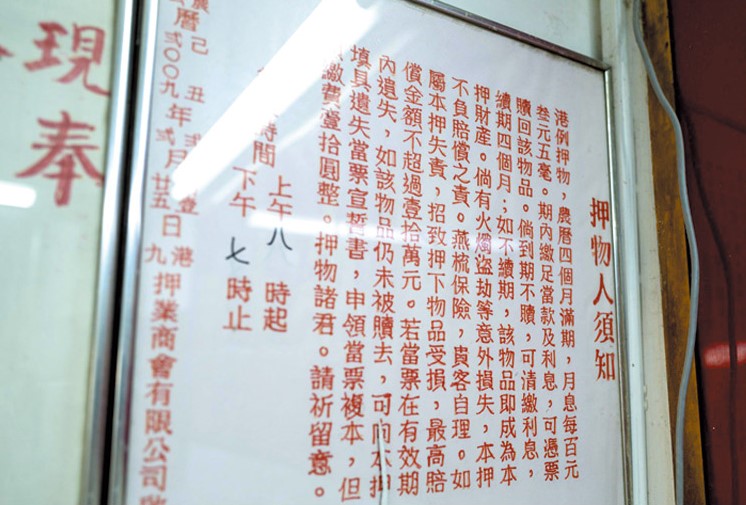 押物人須知
港例押物，農曆四個月滿期，月息每百元
叁元五毫。期內繳足當款及利息，可憑票
贖回該物品。倘到期不贖，可清繳利息，
續期四個月；如不續期，該物品即成為本
押財產。倘有火燭盜劫等意外損失，本押
不負賠償之責。燕梳保險，貴客自理。如
屬本押失責，招致押下物品受損，最高賠
償金額不超過壹拾萬元。若當票在有效期
內遺失，如該物品仍未被贖去，可向本押
填具遺失當票宣誓書，申領當票複本，但
繳費壹拾圓整。押物諸君。請祈留意。
時間 上午八時起
下午七時止
農曆己丑年
公曆貳〇〇九年貳月廿五日
港九押業商會有限公司
現奉